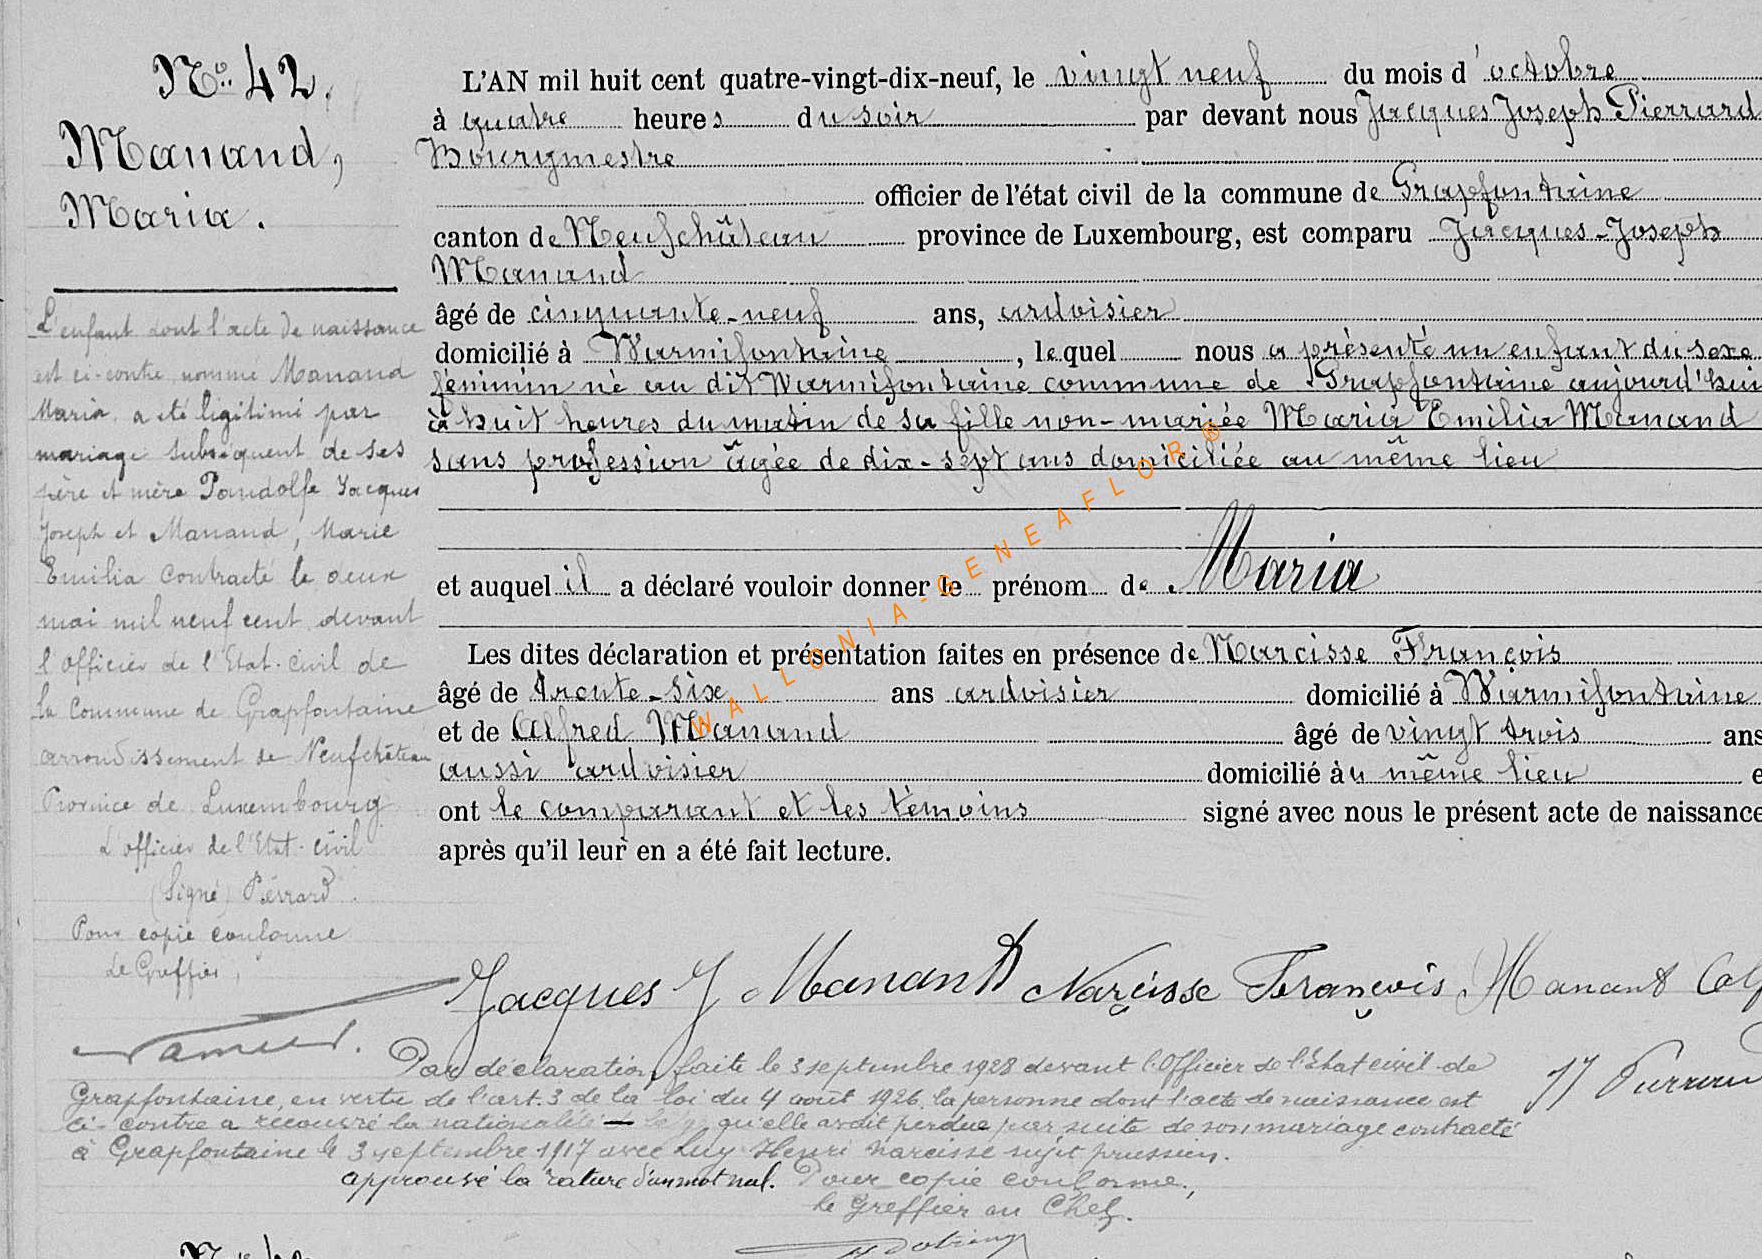 No. 42.
Manand,
Maria.
L'enfant dont l'acte de naissance
est ci-contre, nommé Manand
Maria a été légitimé par
mariage subséquent de ses
père et mère Pandolfe Jacques
Joseph et Manand, Marie
Emilia contracté le deux
mai mil neuf cent, devant
l'officier de l'Etat-civil de
la Commune de Grapfontaine
arrondissement de Neufchâteau
Province de Luxembourg
L'officier de l'Etat-civil
(Signé) Pierrard.
Pour copie conforme
Le Greffier,
L'AN mil huit cent quatre-vingt-dix-neuf, le vingt neuf du mois d'octobre
à quatre heures du soir par devant nous Jacques Joseph Pierrard
Bourgmestre
officier de l'état civil de la commune de Grapfontaine
canton de Neufchâteau province de Luxembourg, est comparu Jacques-Joseph
Manand
âgé de cinquante-neuf ans, ardoisier
domicilié à Warmifontaine, lequel nous a présenté un enfant du sexe
féminin né au dit Warmifontaine commune de Grapfontaine aujourd'hui
à huit heures du matin de sa fille non-mariée Maria Emilia Manand
sans profession âgée de dix-sept ans domiciliée au même lieu
et auquel il a déclaré vouloir donner le prénom de Maria
Les dites déclaration et présentation faites en présence de Narcisse François
âgé de trente-six ans ardoisier domicilié à Warmifontaine
et de Alfred Manand âgé de vingt trois ans
aussi ardoisier domicilié au même lieu e
ont le comparant et les témoins signé avec nous le présent acte de naissance
après qu'il leur en a été fait lecture.
WALLONIA-GENEAFLOR®
Jacques J Manand Narcisse François Manant Alf
JJ Pierrard
Par déclaration faite le 3 septembre 1928 devant l'Officier de l'Etat civil de
Grapfontaine, en vertu de l'art. 3 de la loi du 4 août 1926, la personne dont l'acte de naissance est
ci-contre a recouvré la nationalité — qu'elle avait perdue par suite de son mariage contracté
à Grapfontaine le 3 septembre 1917 avec Luy Henri Narcisse sujet prussien.
approuvé la rature d'un mot nul. Pour copie conforme,
le Greffier en Chef.